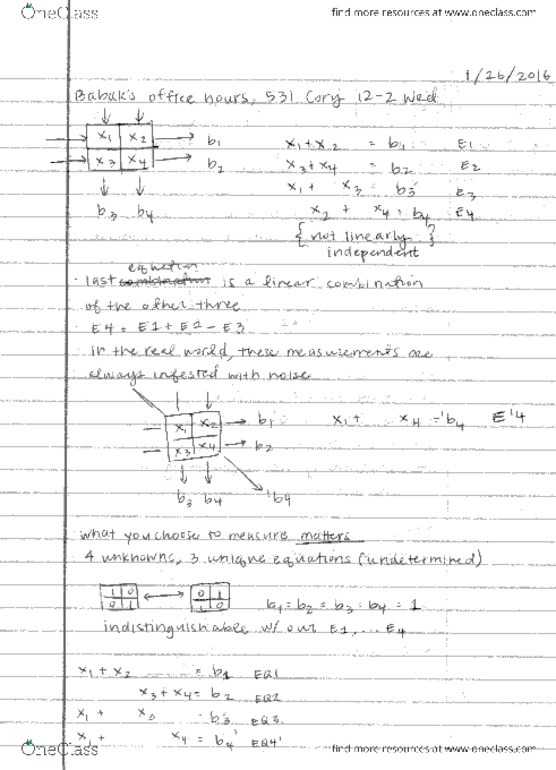 OneClass
find more resources at www.oneclass.com
1/26/2016
Babak's office hours, 531 Cory 12-2 Wed
x1 x2 → b1 x1 + x2 = b1 E1
x3 x4 → b2 x3 + x4 = b2 E2
x1 + x3 = b3 E3
b3 b4 x2 + x4 = b4 E4
{not linearly
independent}
equation
· last combination is a linear combination
of the other three
· E4 = E1 + E2 - E3
in the real world, these measurements are
always infested with noise
x1 x2 → b1 x1 + x4 = 'b4 E'4
x3 x4 → b2
b3 b4 'b4
what you choose to measure matters
4 unknowns, 3 unique equations (undetermined)
1 0 ↔ 0 1
0 1 1 0 b1 = b2 = b3 = b4 = 1
indistinguishable w/ our E1, ... E4
x1 + x2 = b1 EQ1
x3 + x4 = b2 EQ2
x1 + x3 = b3 EQ3
x1 + x4 = b4' EQ4'
OneClass
find more resources at www.oneclass.com